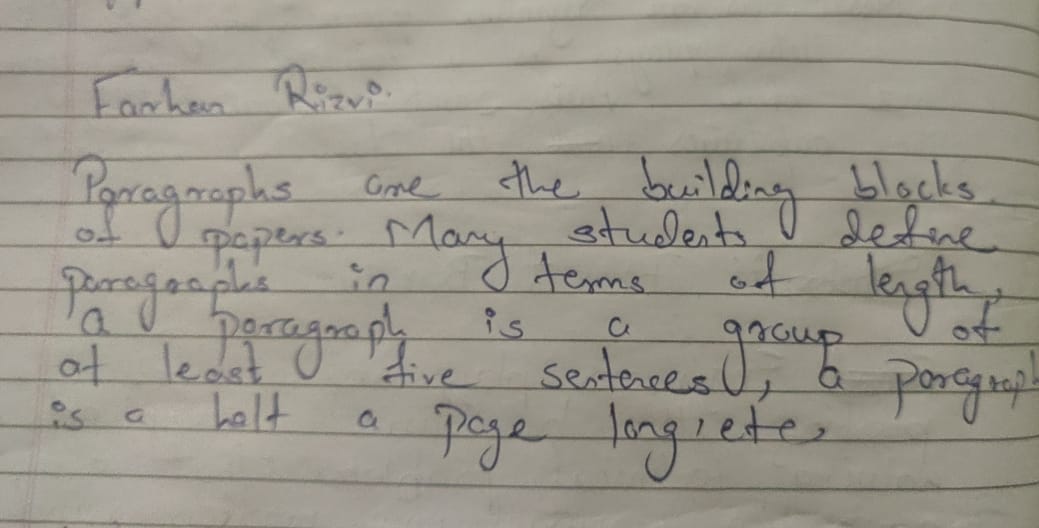 Farhan Rizvi.
Paragraphs are the building blocks
of papers. Many students define
paragraphs in terms of length,
a paragraph is a group of
at least five sentences, a paragraph
is a half a page long, etc,